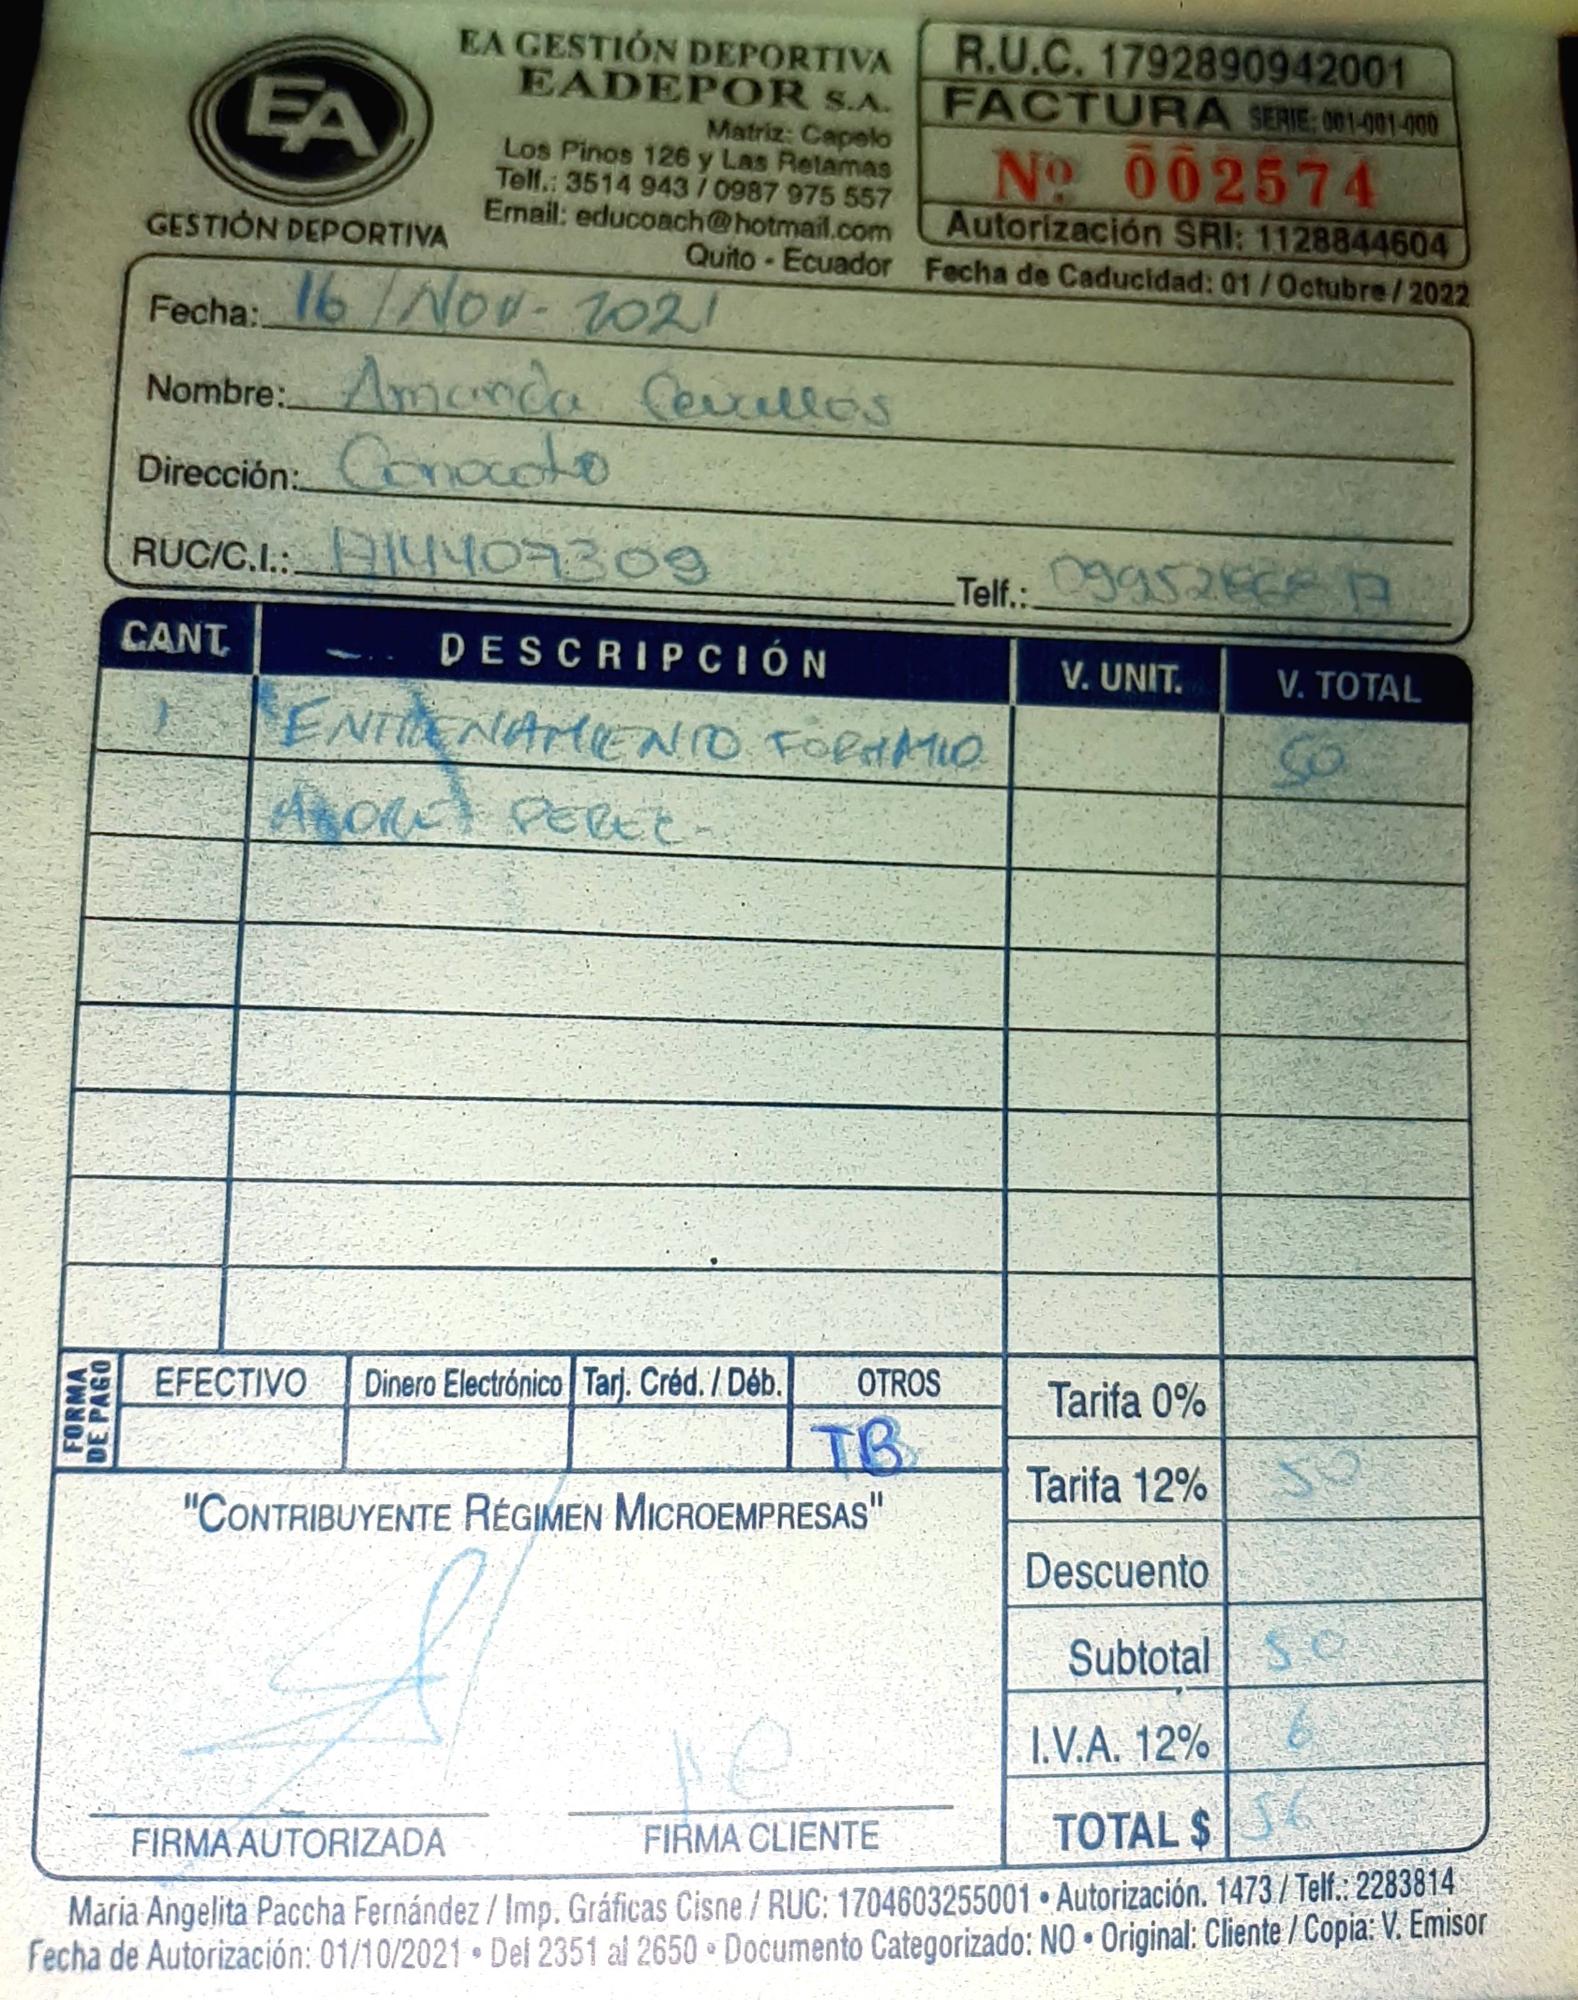 EA
GESTIÓN DEPORTIVA
EA GESTIÓN DEPORTIVA
EADEPOR S.A.
Matriz: Capelo
Los Pinos 126 y Las Retamas
Telf.: 3514 943 / 0987 975 557
Email: educoach@hotmail.com
Quito - Ecuador
R.U.C. 1792890942001
FACTURA SERIE: 001-001-000
Nº 002574
Autorización SRI: 1128844604
Fecha de Caducidad: 01 / Octubre / 2022
Fecha: 16 / Nov - 2021
Nombre: Amanda Cevallos
Dirección: Conocoto
RUC/C.I.: 1714407309 Telf.:
CANT. DESCRIPCIÓN V. UNIT. V. TOTAL
1 ENTRENAMIENTO 50
PEREZ -
FORMA DE PAGO
EFECTIVO Dinero Electrónico Tarj. Créd. / Déb. OTROS
TB
Tarifa 0%
Tarifa 12% 50
Descuento
Subtotal 50
I.V.A. 12% 6
TOTAL $ 56
"CONTRIBUYENTE RÉGIMEN MICROEMPRESAS"
FIRMA AUTORIZADA FIRMA CLIENTE
Maria Angelita Paccha Fernández / Imp. Gráficas Cisne / RUC: 1704603255001 • Autorización. 1473 / Telf.: 2283814
Fecha de Autorización: 01/10/2021 • Del 2351 al 2650 • Documento Categorizado: NO • Original: Cliente / Copia: V. Emisor